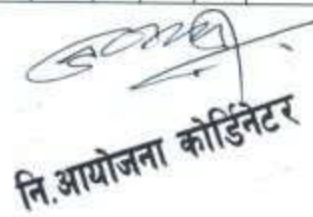 नि.आयोजना कोर्डिनेटर